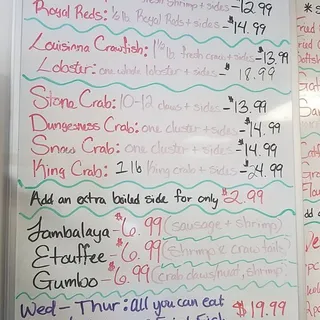 fresh shrimp + sides - 12.99
Royal Reds: 1/2 lb Royal Reds + sides - $14.99
Louisiana Crawfish: 1 1/2 lb fresh craws + sides - $13.99
Lobster: one whole lobster + sides - $18.99
Stone Crab: 10-12 claws + sides - $13.99
Dungesness Crab: one cluster + sides - $14.99
Snow Crab: one cluster + sides - $14.99
King Crab: 1 lb King crab + sides - $24.99
Add an extra boiled side for only $2.99
Jambalaya - $6.99 (sausage + shrimp)
Etouffee - $6.99 (shrimp & crawtails)
Gumbo - $6.99 (crab claws/meat, shrimp)
Wed - Thur: All you can eat $19.99